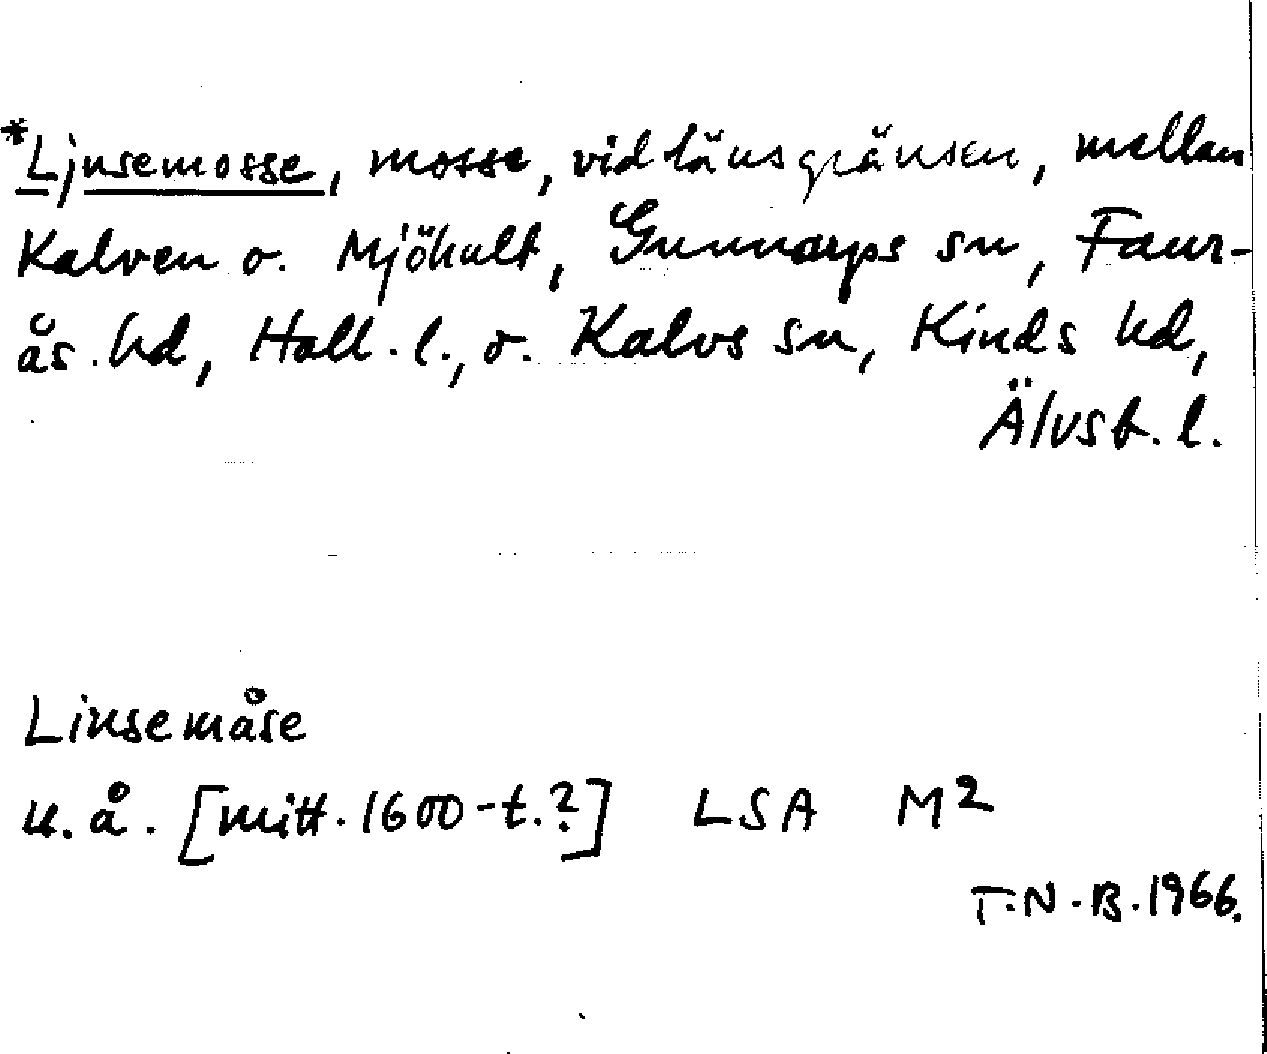 *Ljusemosse, mosse, vid länsgränsen, mellan
Kalven o. Mjöhult, Gunnarps sn, Faur-
ås hd, Hall. l., o. Kalvs sn, Kinds hd,
Älvsb. l.
Linsemåse
u. å. [mitt. 1600-t.?] LSA M2
T.N.B. 1966.